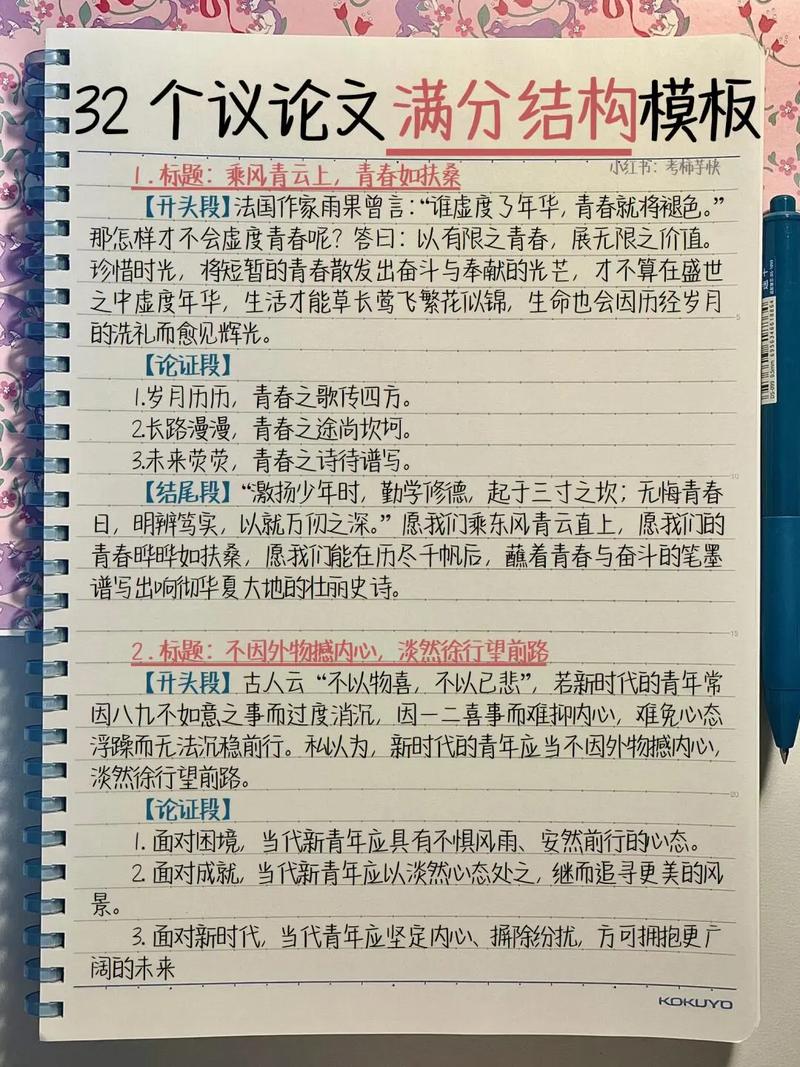 32个议论文满分结构模板
小红书：考柿芋快
1.标题：乘风青云上，青春如扶桑
【开头段】法国作家雨果曾言：“谁虚度了年华，青春就将褪色。”
那怎样才不会虚度青春呢？答曰：以有限之青春，展无限之价值。
珍惜时光，将短暂的青春散发出奋斗与奉献的光芒，才不算在盛世
之中虚度年华，生活才能草长莺飞繁花似锦，生命也会因历经岁月
的洗礼而愈见辉光。
【论证段】
1.岁月历历，青春之歌传四方。
2.长路漫漫，青春之途尚坎坷。
3.未来荧荧，青春之诗待谱写。
【结尾段】“激扬少年时，勤学修德，起于三寸之坎；无悔青春
日，明辨笃实，以就万仞之深。”愿我们乘东风青云直上，愿我们的
青春晔晔如扶桑，愿我们能在历尽千帆后，蘸着青春与奋斗的笔墨
谱写出响彻华夏大地的壮丽史诗。
2.标题：不因外物撼内心，淡然徐行望前路
【开头段】古人云“不以物喜，不以己悲”，若新时代的青年常
因八九不如意之事而过度消沉，因一二喜事而难抑内心，难免心态
浮躁而无法沉稳前行。私以为，新时代的青年应当不因外物撼内心，
淡然徐行望前路。
【论证段】
1.面对困境，当代新青年应具有不惧风雨、安然前行的心态。
2.面对成就，当代新青年应以淡然心态处之，继而追寻更美的风
景。
3.面对新时代，当代青年应坚定内心、摒除纷扰，方可拥抱更广
阔的未来
KOKUYO
5
10
15
20